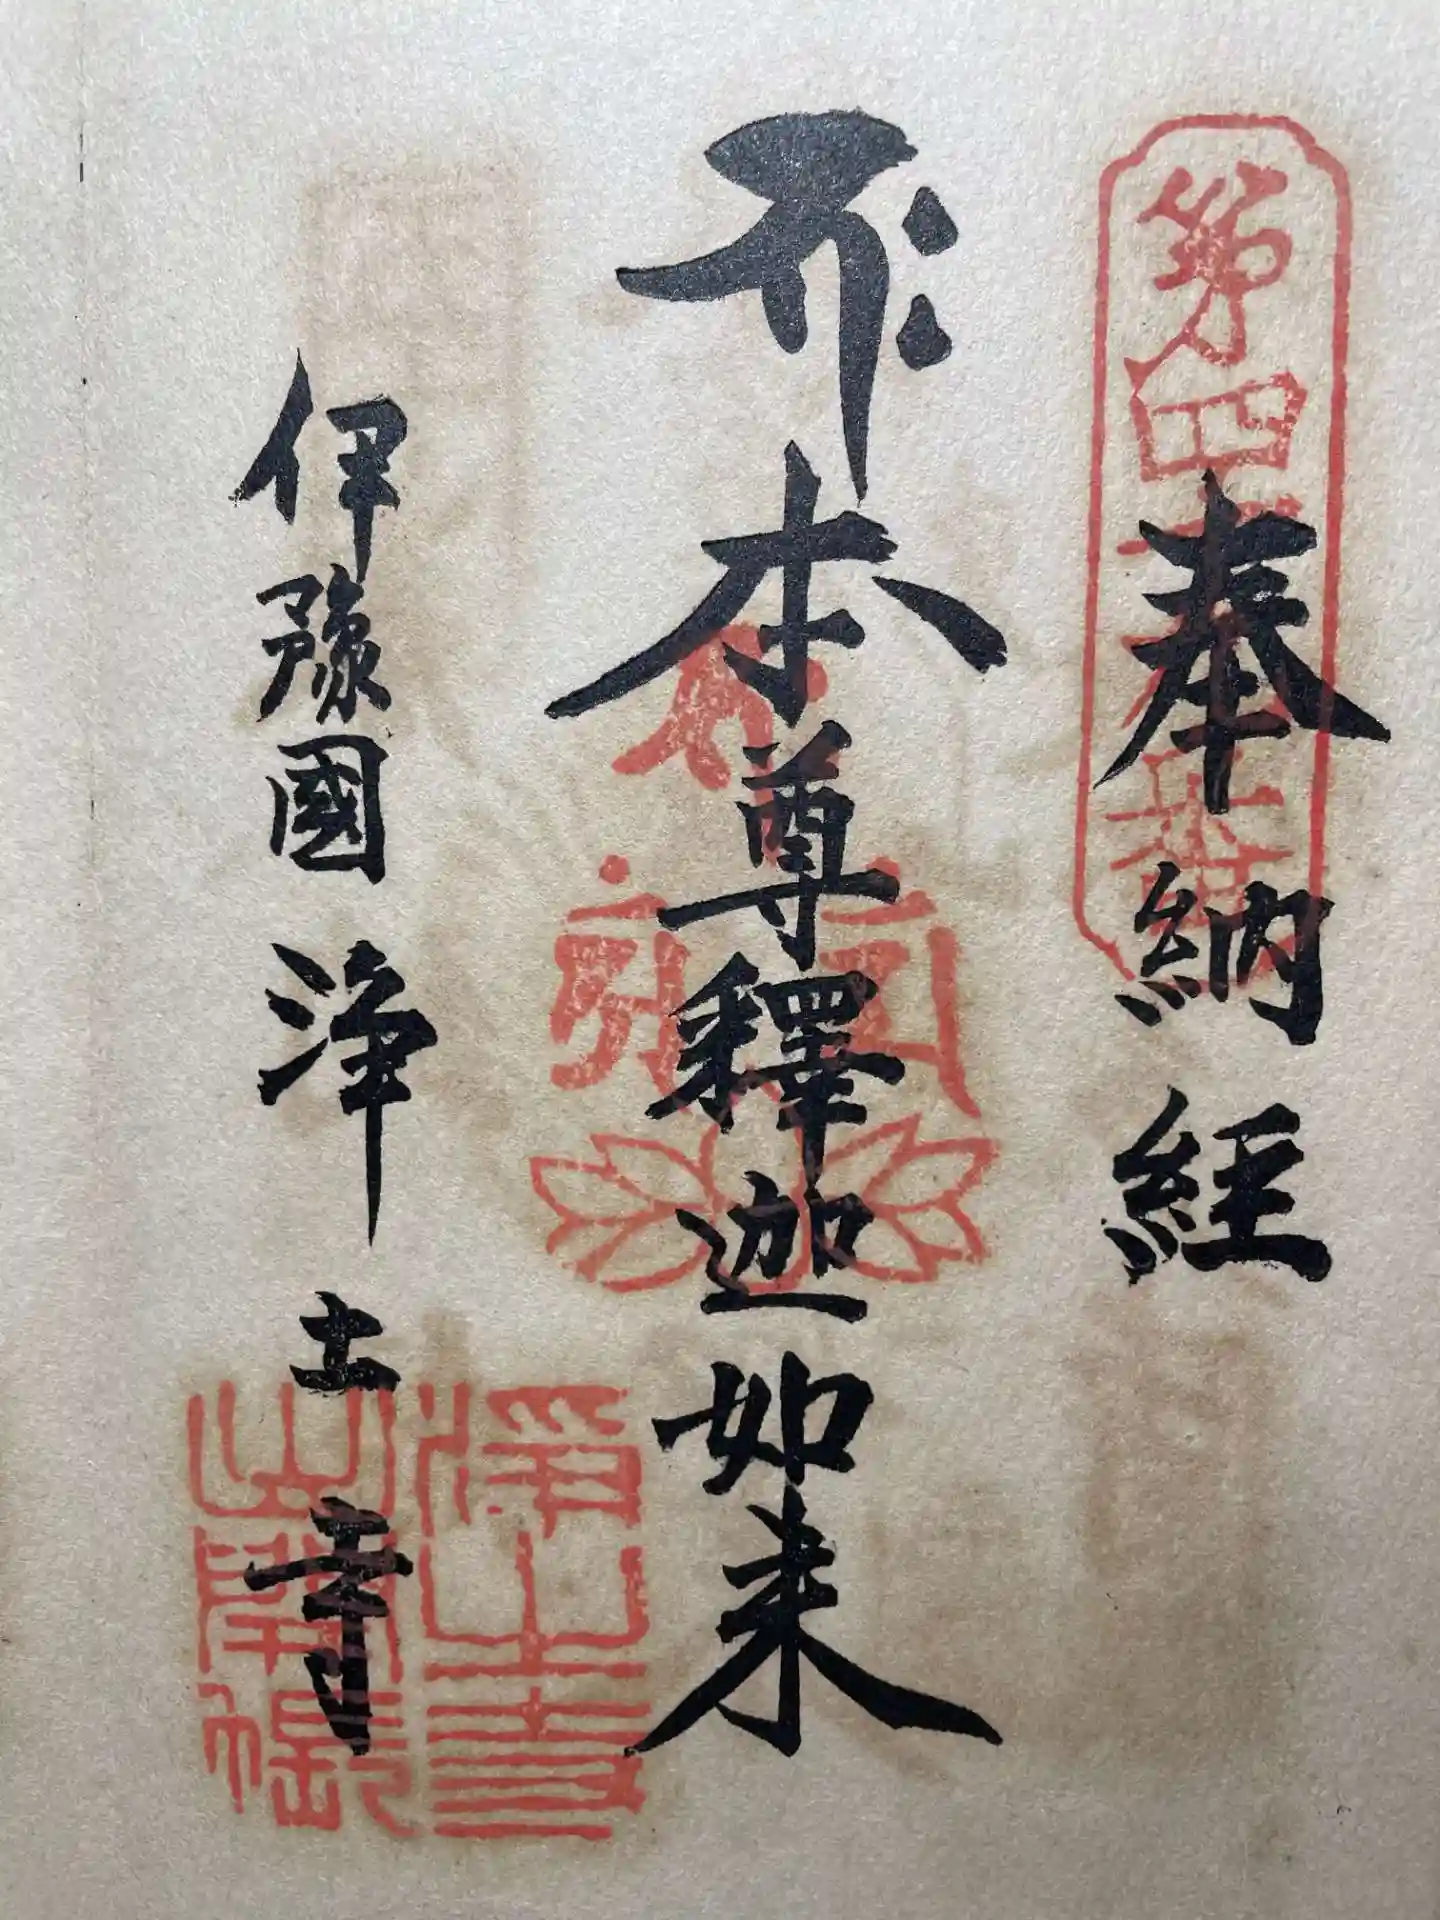 奉納経
本尊釋迦如来
伊豫國浄土寺
第四十九番
浄土寺